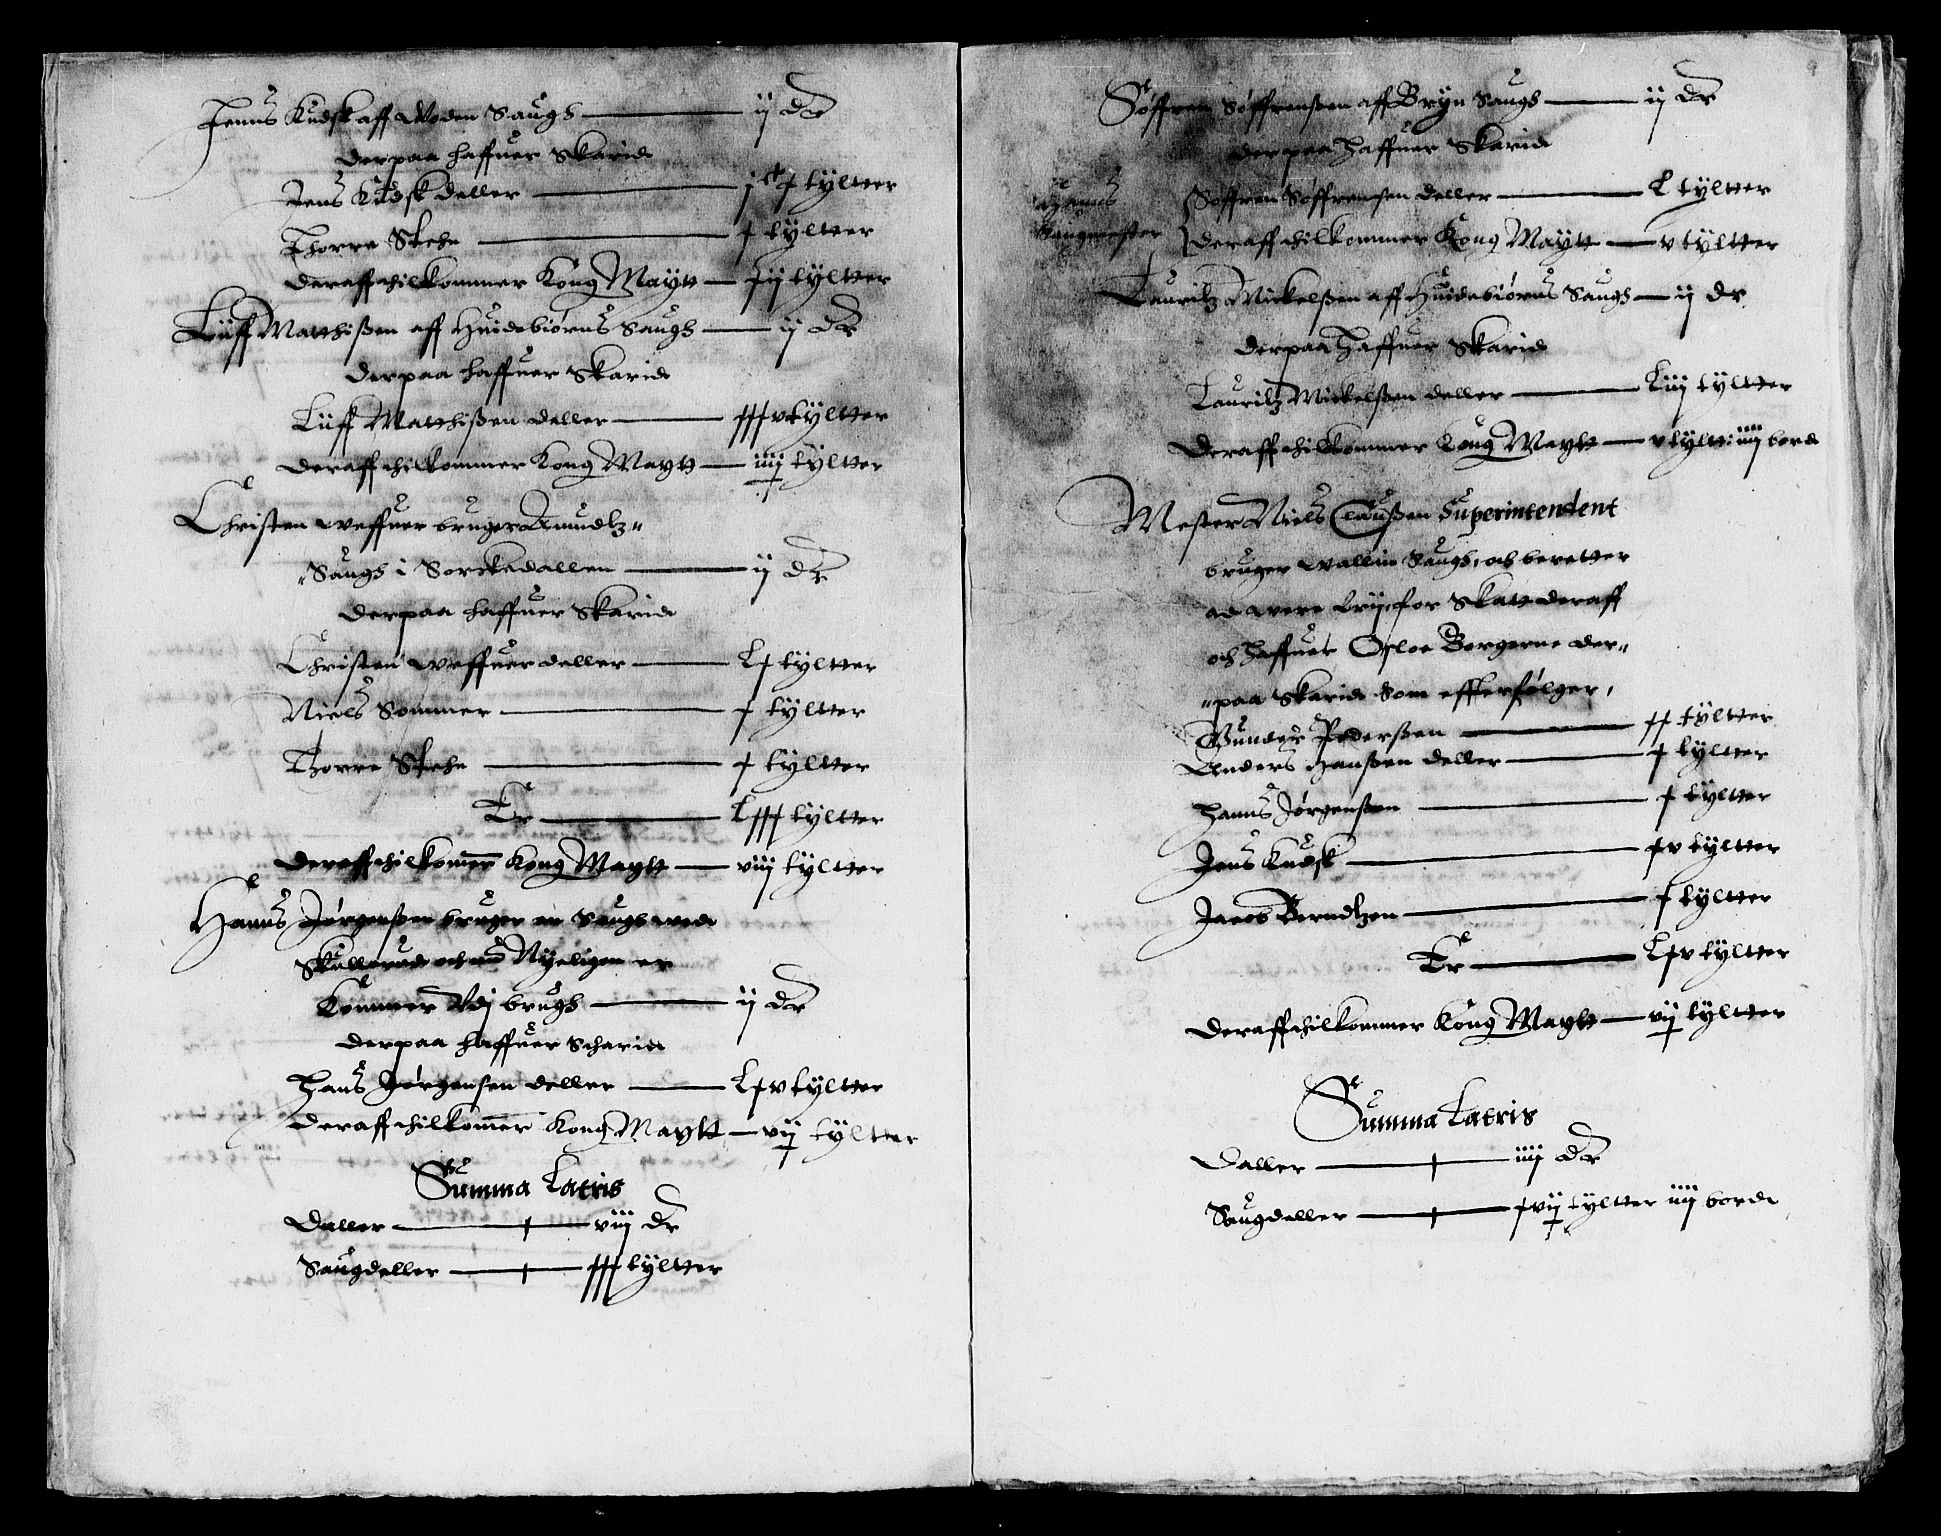 Jenns Kudsk aff Woden Saugh —— ij dr
derpaa haffuer Skarid
Jens Kudsk deller —— jc x tyltter
Thorre Skehe —— x tyltter
deraff thilkommer Kong Maytt — xij tyltter
Luff Matthißen aff Huidebiørns Saugh — ij dr
derpaa haffuer Skarid
Luff Matthißen deller — xxxv tyltter
deraff thilkommer Kong Maytt — iiij tyltter
Christen Weffuer bruger Amudtz„
„Saugh i Sorckedallen —— ij dr
derpaa haffuer Skarid
Christen Weffuer deller —— Lx tyltter
Niels Sommer —— x tyltter
Thorre Skehe —— x tyltter
Er —— Lxxx tyltter
deraff thilkomer Kong Maytt — viij tyltter
Hanns Jørgenßen bruger en Saugh wed
Skullerud och nu Nyeligen er
Kommer Vdj brugh —— ij dr
derpaa haffuer Scharid
Hans Jørgensen deller —— Lxv tyltter
deraff thilkomer Kong Maytt — vij tyltter
Summa Latris
Daller —— viij dr
Saugdeller —— xxx tyltter
Søffren Søffrenßen aff Bryn Saugh —— ij dr
derpaa Haffuer Skarid
Søffren Søffrensen deller —— L tyltter
deraff thilkommer Kong Maytt — v tyltter
Lauritz Mickelßen aff Huidebiørns Saugh — ij dr
derpaa Haffuer Skarid
Lauritz Mickelßen deller —— Liiij tyltter
deraff thilkommer Kong Maytt — v tyltt: iiij bord
Mester Niels Claußen Superintendent
bruger Wallin Saugh, och beretter
ad were frij for Skatt deraff
och haffuer Osloe Borgerne der„
„paa Skarid Som effterfølger,
Gunder Pederßen —— xx tyltter
Anders Hanßen deller —— x tyltter
Hanns Jørgenßen —— x tyltter
Jens Kudsk —— xv tyltter
Jacob Berndtzen —— x tyltter
Er —— Lxv tyltter
deraff thilkommer Kong Maytt — vij tyltter
Summa Latris
Daller —— iiij dr
Saugdeller —— xvij tyltter iiij bord